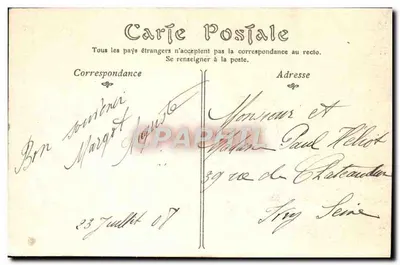 Carte Postale
Tous les pays étrangers n'acceptent pas la correspondance au recto.
Se renseigner à la poste.
Correspondance
Adresse
Bon souvenir
Margot
23 Juillet 07
CPAREMA
Monsieur et
Madame Paul Héliot
39 rue de Chateaudun
Ivry Seine